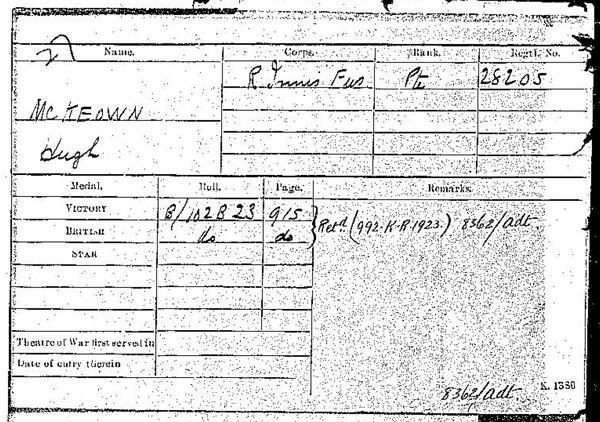 Name. Corps. Rank. Regtl. No.
R Innis Fus Pte 28205
MCKEOWN
Hugh
Medal. Roll. Page. Remarks.
VICTORY B/102B23 915
BRITISH do do Retd. (992.K.R.1923.) 8362/adt.
STAR
Theatre of War first served in
Date of entry therein
8362/adt. K. 1380